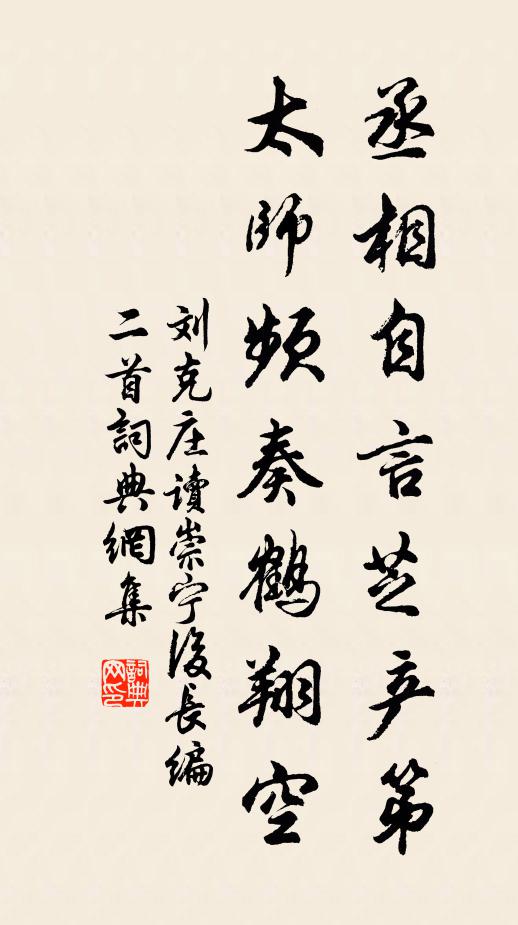 丞相自言芝产第
太師频奏鶴翔空
刘克庄讀崇宁後長编
二首詞典網集
詞典网印